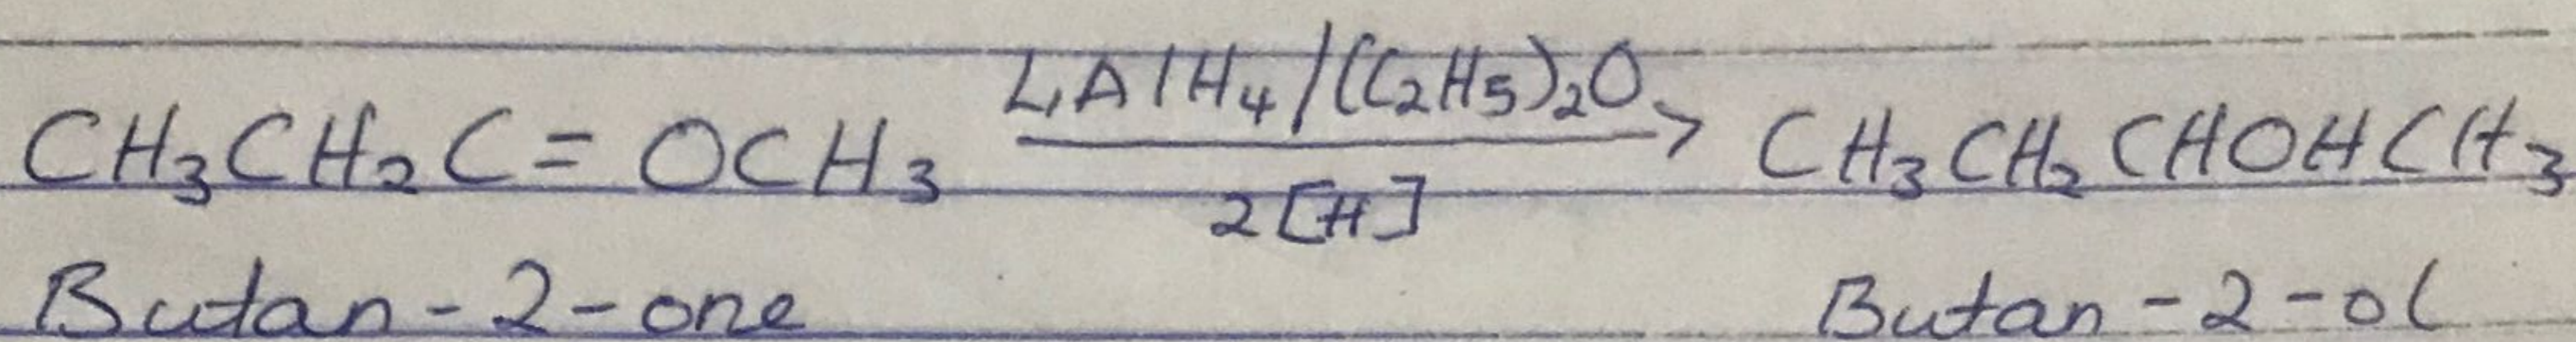 CH₃CH₂C=OCH₃ LiAlH₄/(C₂H₅)₂O → CH₃CH₂CHOHCH₃
2[H]
Butan-2-one Butan-2-ol